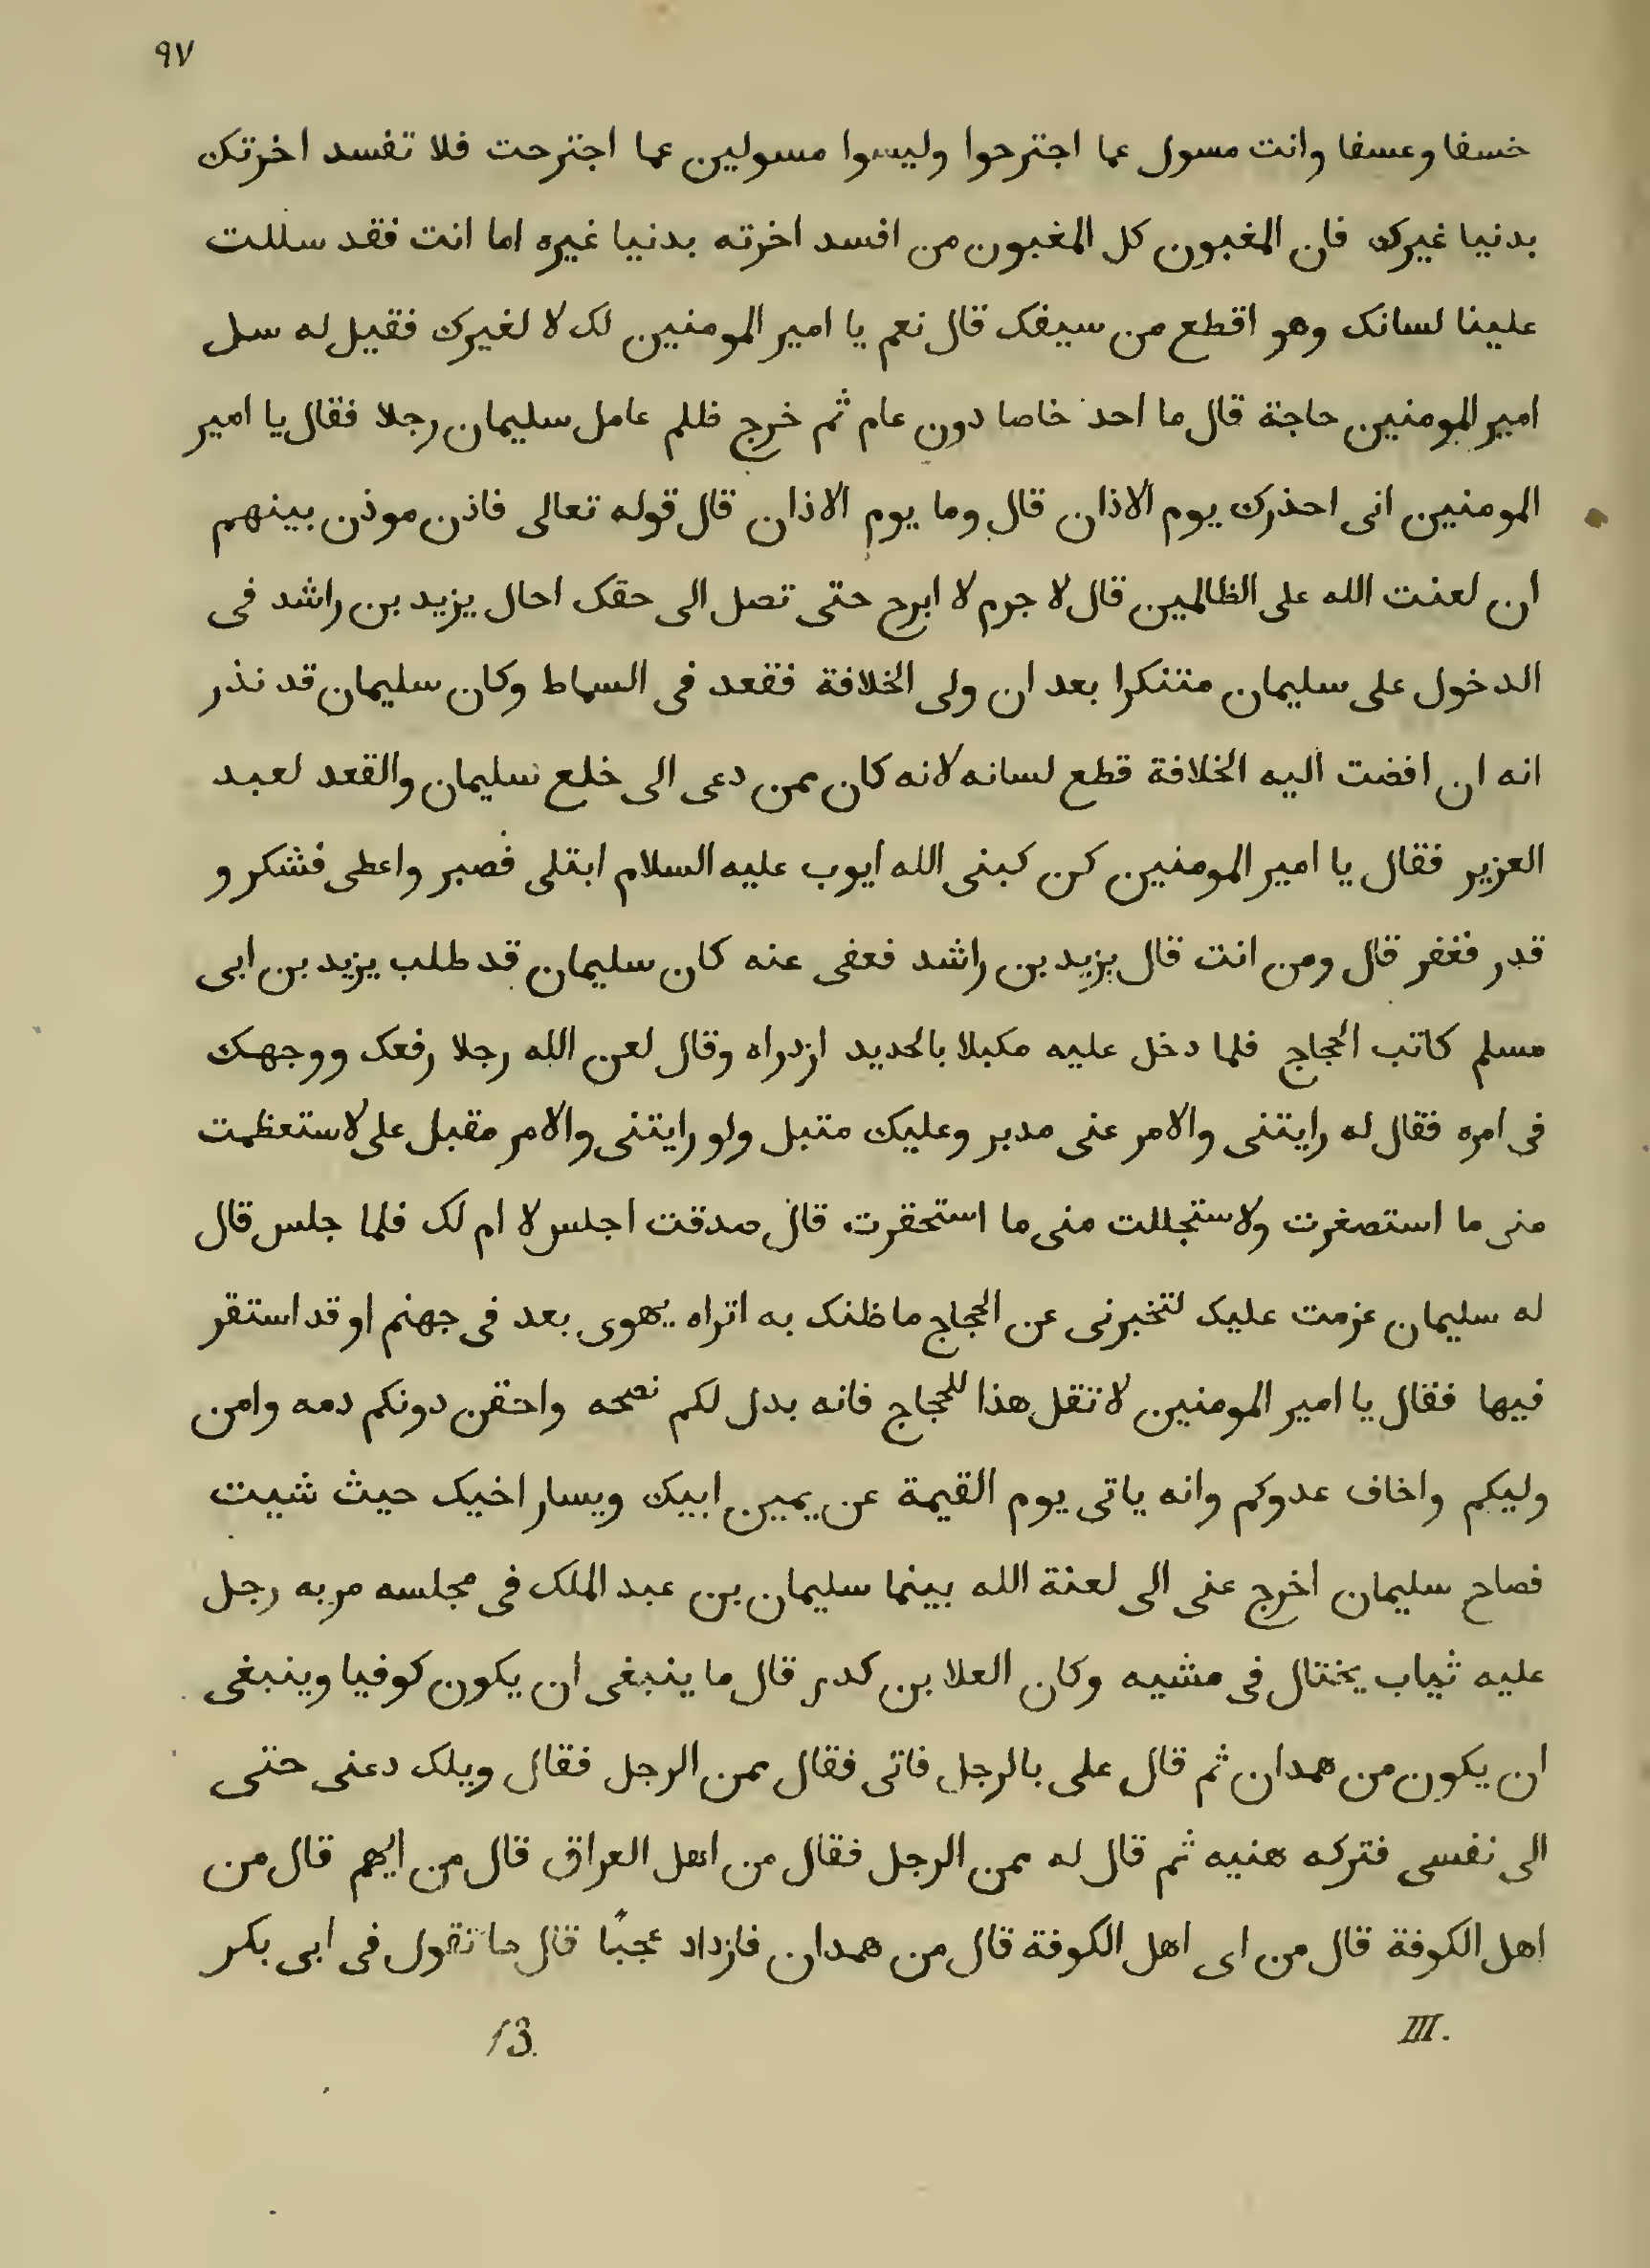 ٩٧
خسفا وعسفا وانت مسول عما اجترحوا وليسوا مسولين عما اجترحت فلا تفسد اخرتك
بدنيا غيرك فان المغبون كل المغبون من افسد اخرته بدنيا غيره اما انت فقد سللت
علينا لسانك وهو اقطع من سيفك قال نعم يا امير المومنين لك لا لغيرك فقيل له سل
امير المومنين حاجة قال ما احد خاصا دون عام ثم خرج ظلم عامل سليمان رجلا فقال يا امير
المومنين انى احذرك يوم الاذان قال وما يوم الاذان قال قوله تعالى فاذن موذن بينهم
ان لعنت الله على الظالمين قال لا جرم لا ابرح حتى تصل الى حقك احال يزيد بن راشد فى
الدخول على سليمان متنكرا بعد ان ولى الخلافة فقعد فى السماط وكان سليمان قد نذر
انه ان افضت اليه الخلافة قطع لسانه لانه كان ممن دعى الى خلع سليمان والقعد لعبد
العزير فقال يا امير المومنين كن كبنى الله ايوب عليه السلام ابتلى فصبر واعطى فشكر و
قدر فغفر قال ومن انت قال يزيد بن راشد فعفى عنه كان سليمان قد طلب يزيد بن ابى
مسلم كاتب الحجاج فلما دخل عليه مكبلا بالحديد ازدراه وقال لعن الله رجلا رفعك ووجهك
فى امره فقال له رايتنى والامر عنى مدبر وعليك متبل ولو رايتنى والامر مقبل على لاستعظمت
منى ما استصغرت ولاستجللت منى ما استحقرت قال صدقت اجلس لا ام لك فلما جلس قال
له سليمان عزمت عليك لتخبرنى عن الحجاج ما ظنك به اتراه يهوى بعد فى جهنم او قد استقر
فيها فقال يا امير المومنين لا تقل هذا للحجاج فانه بدل لكم نصحه واحقن دونكم دمه وامن
وليكم واخاف عدوكم وانه ياتى يوم القيمة عن يمين ابيك ويسار اخيك حيث شيت
فصاح سليمان اخرج عنى الى لعنة الله بينما سليمان بن عبد الملك فى مجلسه مر به رجل
عليه ثياب يختال فى مشيه وكان العلا بن كدر قال ما ينبغى ان يكون كوفيا وينبغى
ان يكون من همدان ثم قال على بالرجل فاتى فقال ممن الرجل فقال ويلك دعنى حتى
الى نفسى فتركه هنيه ثم قال له ممن الرجل فقال من اهل العراق قال من ايهم قال من
اهل الكوفة قال من اى اهل الكوفة قال من همدان فازداد عجبًا قال ما تقول فى ابى بكر
III. 13.